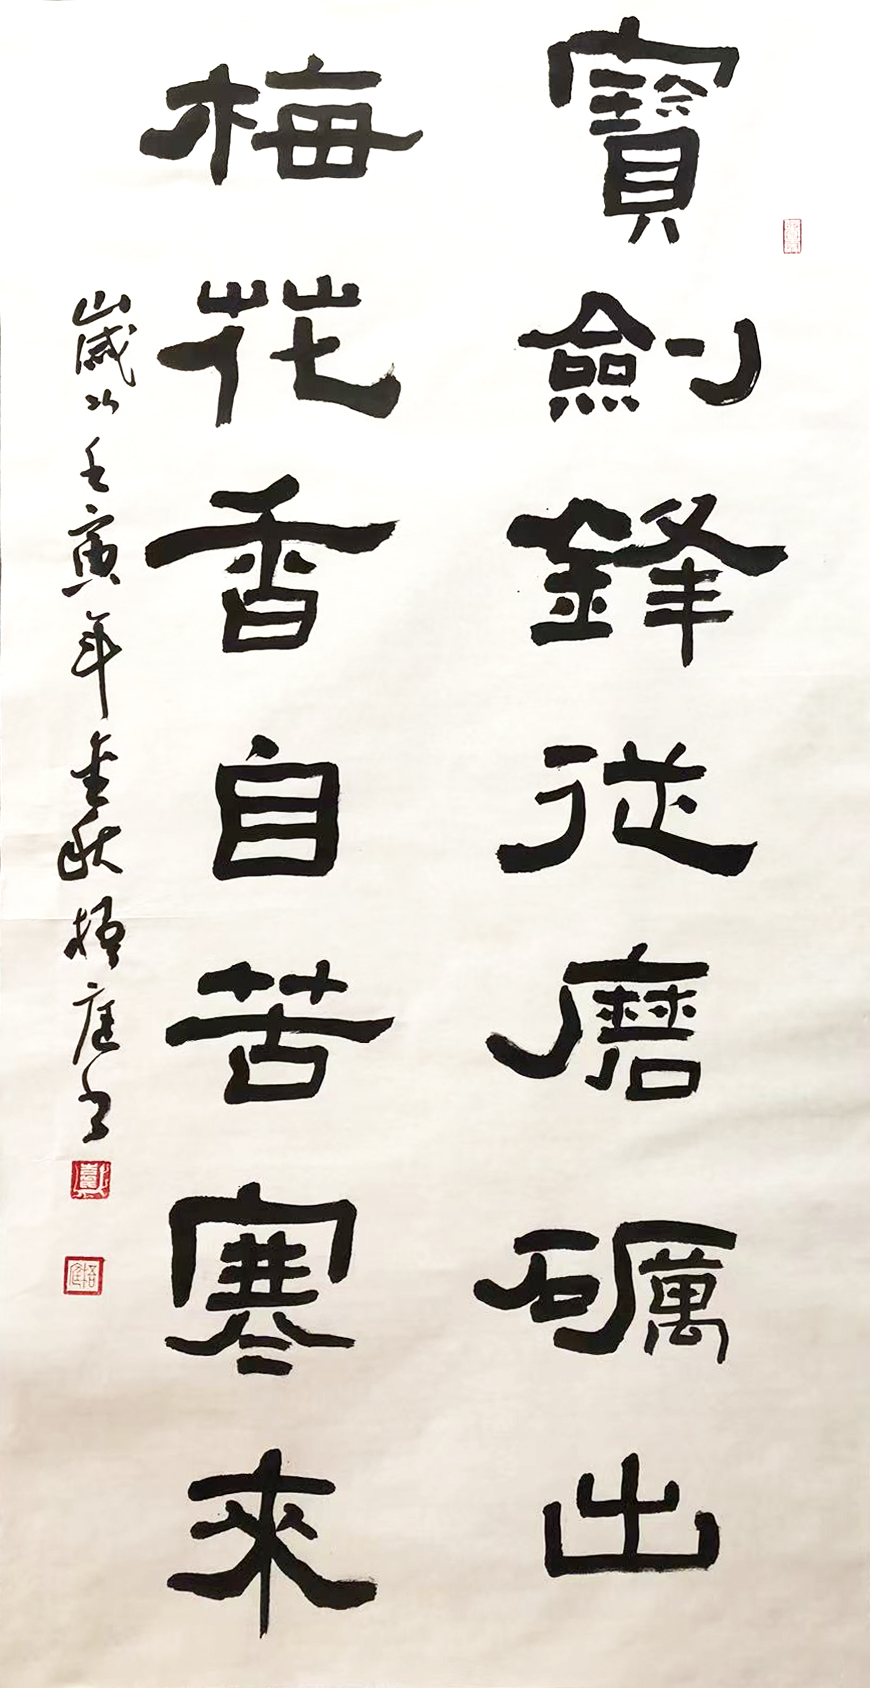 寶劍鋒從磨礪出
梅花香自苦寒來
歲次壬寅年金秋梧庭书